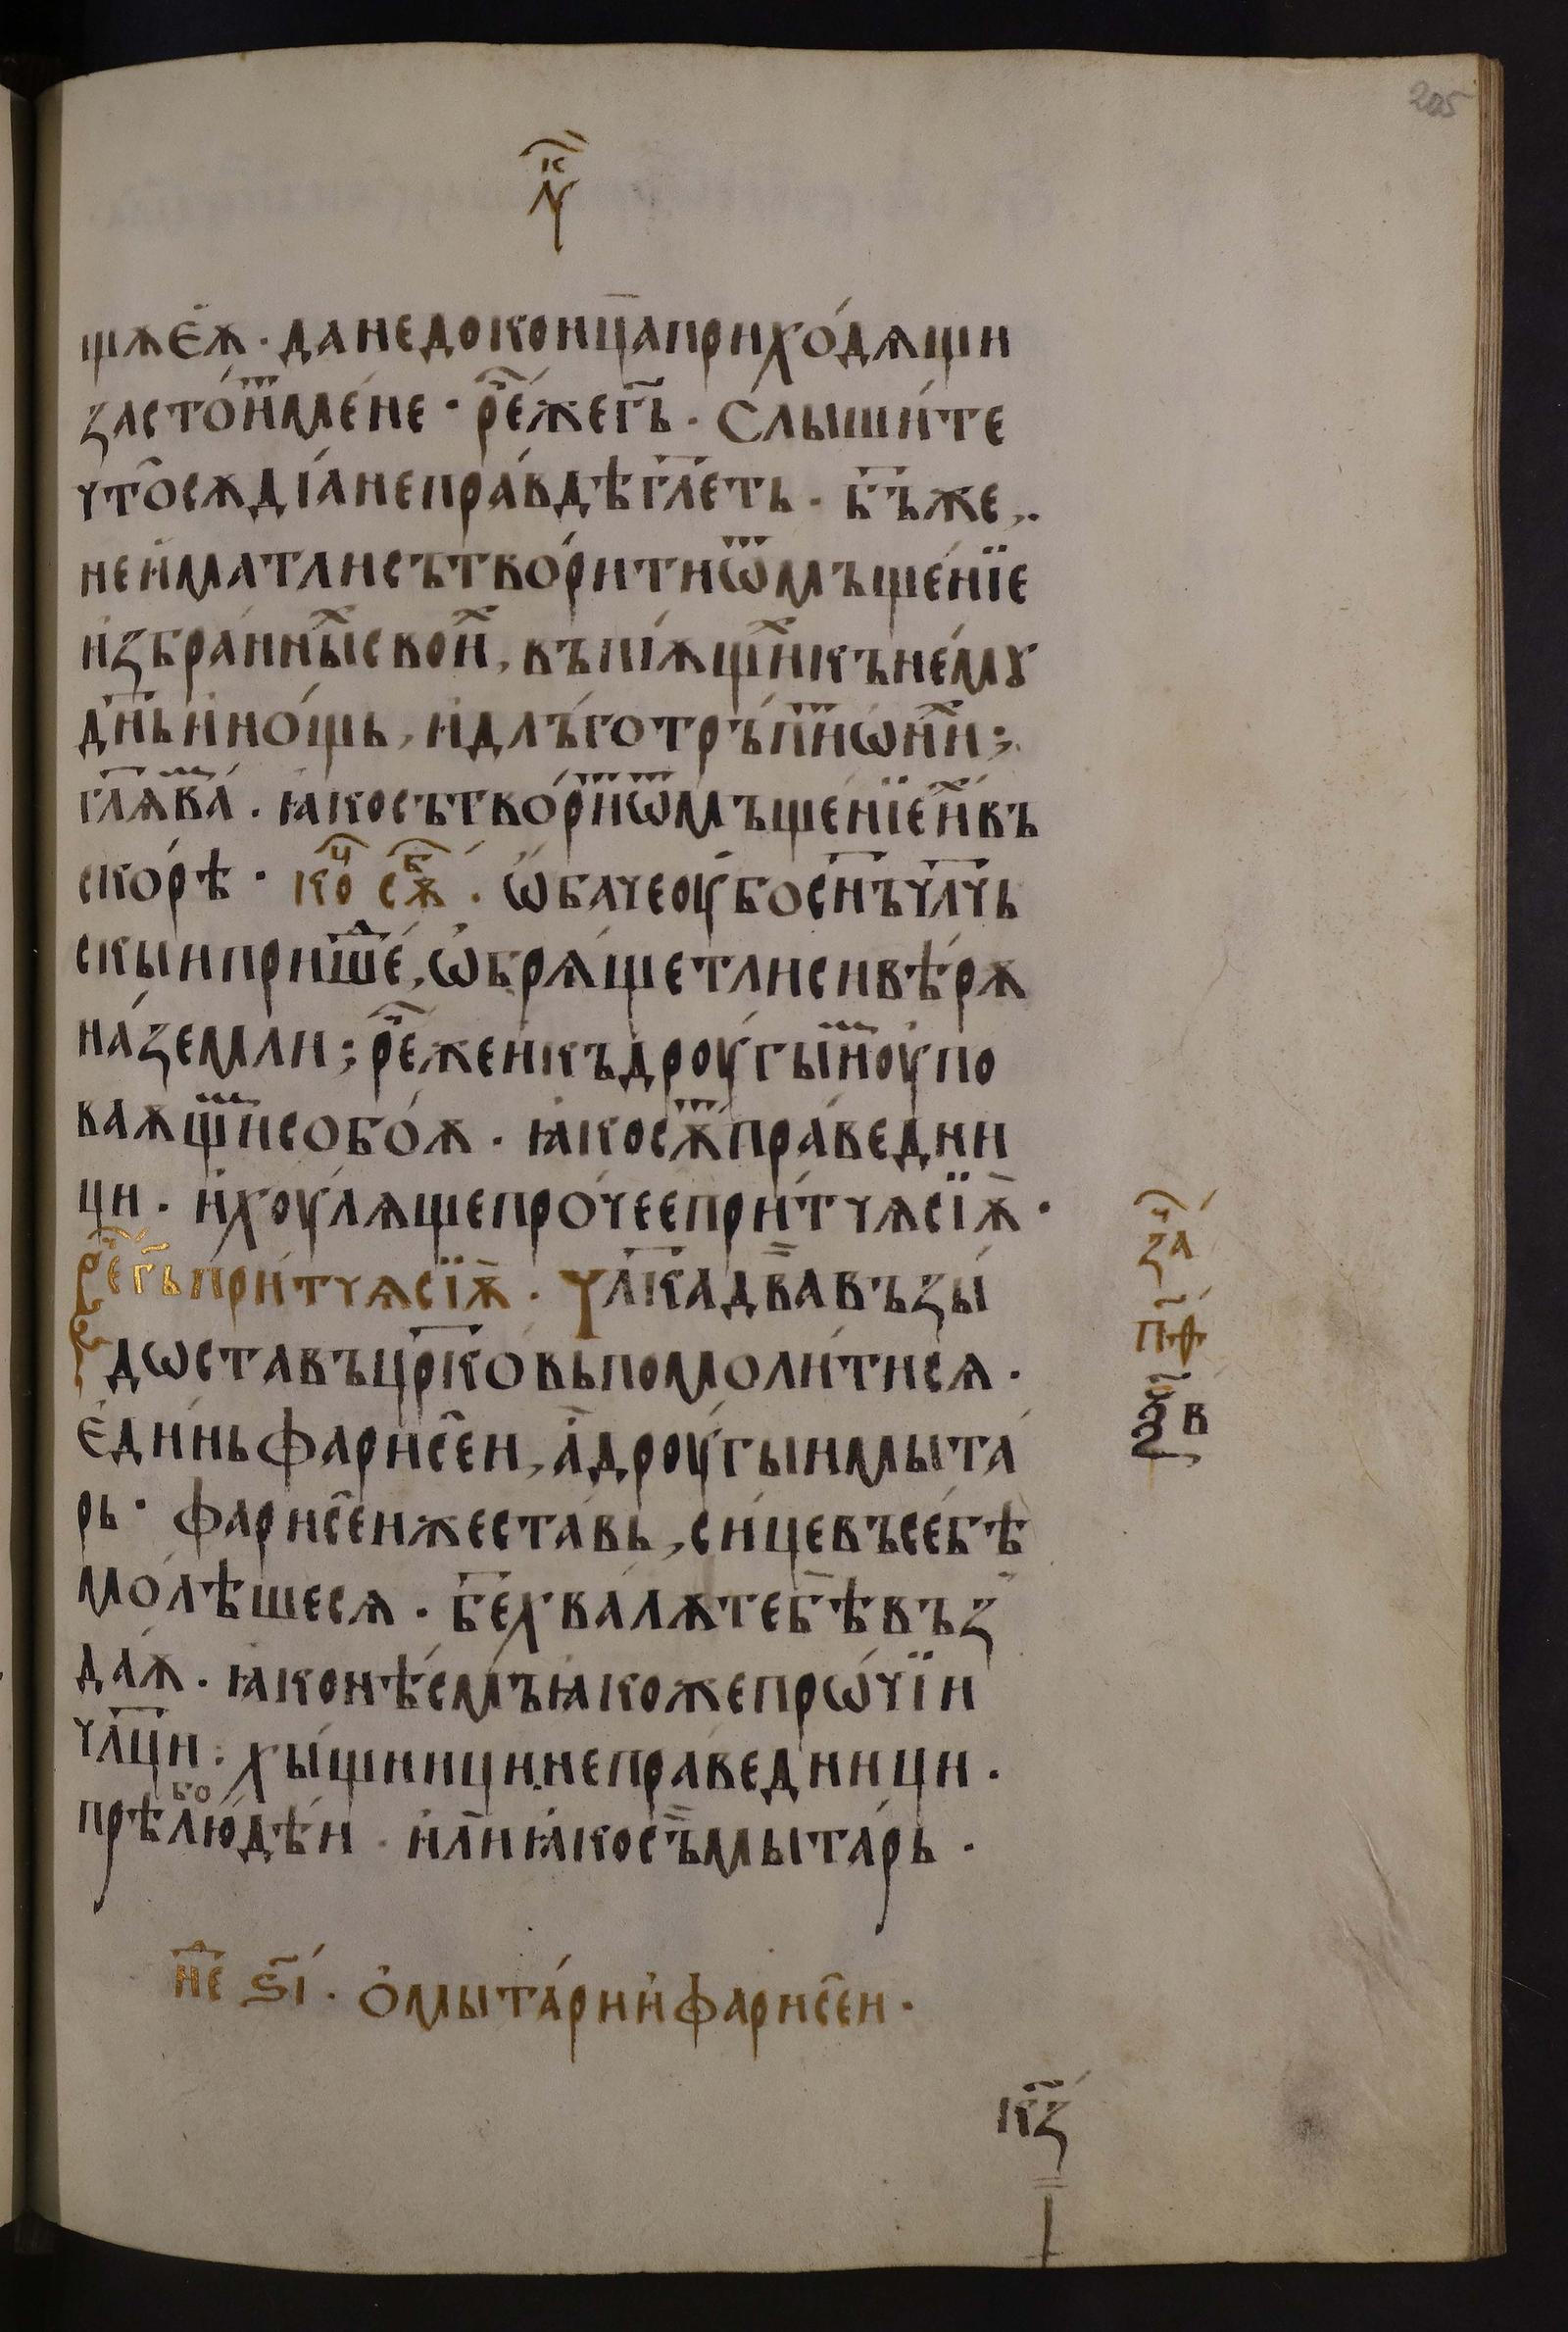 205
лꙋ҇к
щѫеѫ҆ · да не до конца приходѧщи
застоит мене · реⷱ҇ же г҃ь · Слышите
что сѫдїа неправдѣ гл҃еть · б҃ъ же ,.
не имат ли сътворити ѿмъщенїе
избранныⷯ своиⷯ, въпїѫщиⷯ къ нему
дн҃ь и нощь, и длъготръпит ѡ ниⷯ ;
гл҃ѫ ваⷨ . ꙗко сътворит ѿмъщенїе иⷯ въ
скорѣ · коⷰ҇ сѫⷠ҇ . ѡбаче оубо сн҃ъ чл҃чь
скыи пришеⷣ, ѡбрѧщет ли си вѣрѫ
на земли ; реⷱ҇ же и къ дроугыим оупо
ваѫщим собоѫ . ꙗко сѫт праведни
ци . и хоулѧще прочее притчѫ сїѫ ·
Реⷱ҇ г҃ь притчѫ сїѫ . Чл҃ка два възы
дѡста въ цр҃ковь помолитисѧ .
Единь фарисеи, а дроугыи мыта
рь · фарисеи же ставь, сице въ себѣ
молѣшесѧ . б҃е хвалѫ тебѣ въз
даѫ . ꙗко нѣсмъ ꙗкоже прѡчїи
чл҃ци : хыщници. неправедници .
прѣлюбодѣи . или ꙗко съ мытарь .
заⷱ҇
п҃ѳ
в
неⷣ ѕ҃і . О мытари и фарисеи .
к҃з